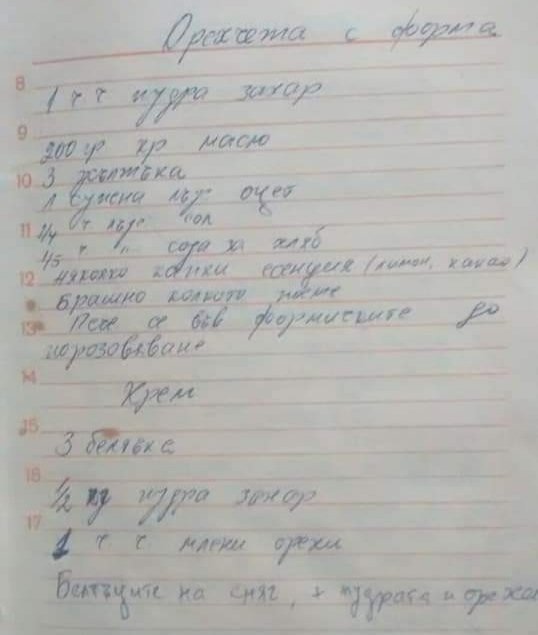 Орехчета с форма
8
1 ч ч пудра захар
9
200 гр кр масло
10 3 жълтъка
1 супена лъж оцет
11 1/4 ч лъж сол
1/5 ч " сода за хляб
12 няколко капки есенция (лимон, какао)
брашно колкото поеме
13 Пече се във формичките до
порозовяване
14
Крем
15
3 белтъка
16
1/2 кг пудра захар
17
1 ч ч млени орехи
Белтъците на сняг, + пудрата и орехи